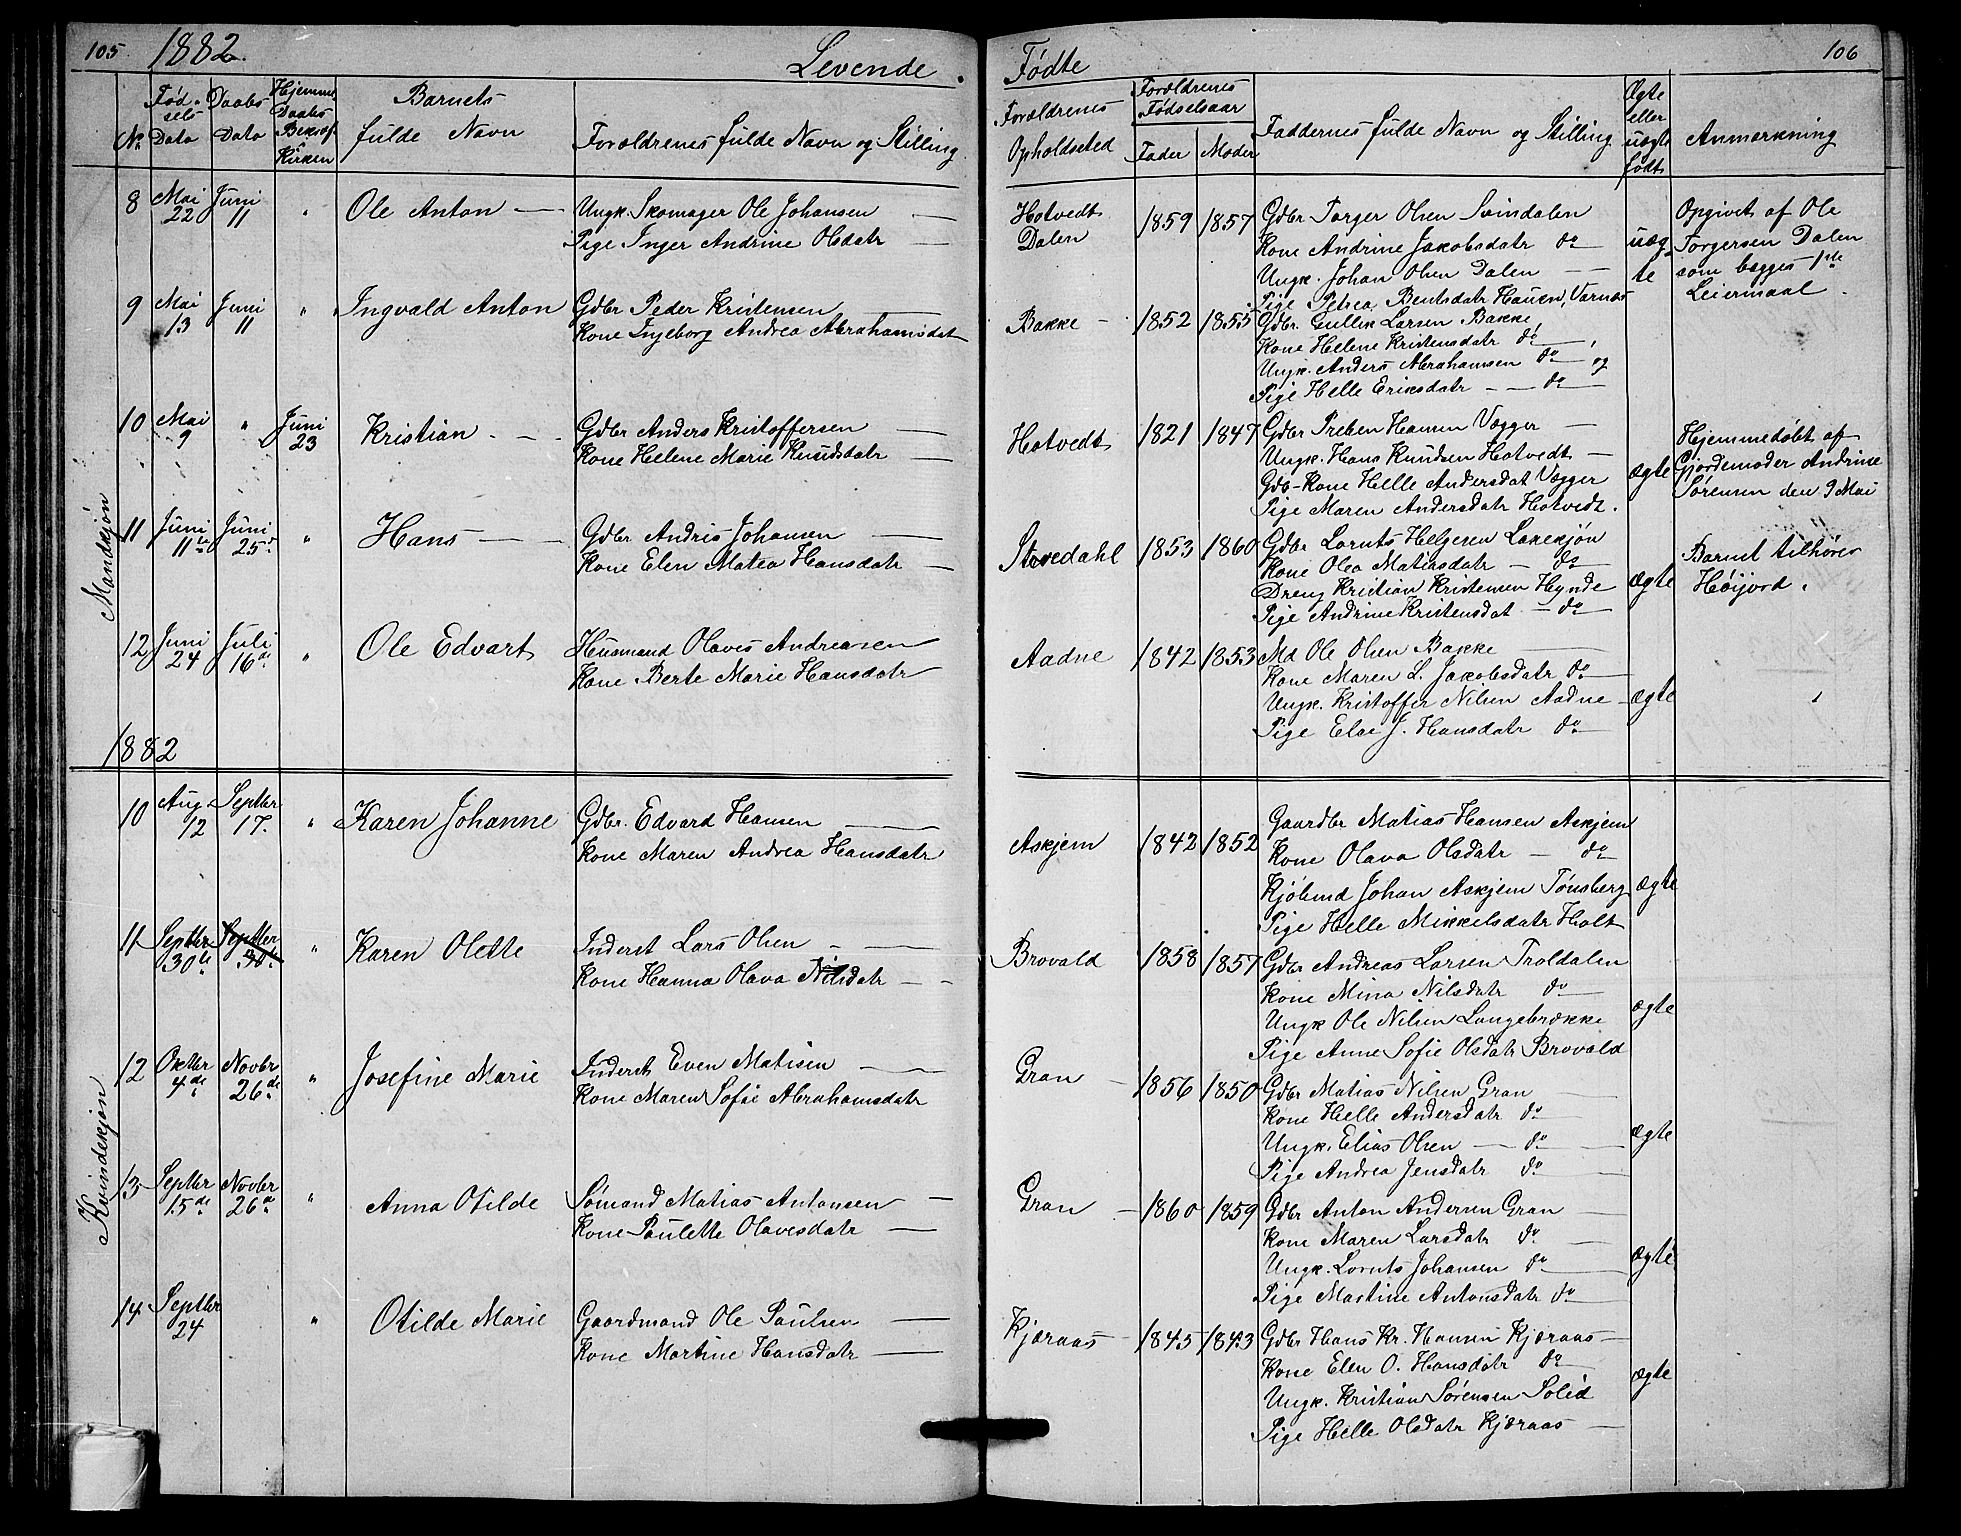 105 1882. Levende
No Fødsels Dato Daabs Dato Hjemme Daabs Bekræf. Kirken Barnets fulde Navn Forældrenes fulde Navn og Stilling
Mandkjøn
8 Mai 22 Juni 11 " Ole Anton — Ungk. Skomager Ole Johansen —
Pige Inger Andrine Olsdatr —
9 Mai 13 Juni 11 " Ingvald Anton Gdbr Peder Kristensen —
Kone Ingeborg Andrea Abrahamsdat
10 Mai 9 " Juni 23 Kristian — Gdbr Anders Kristoffersen —
Kone Helene Marie Knudsdatr —
11 Juni 11te Juni 25de " Hans — Gdbr Andris Johansen —
Kone Elen Matea Hansdatr —
12 Juni 24 Juli 16de " Ole Edvart Husmand Olaves Andreasen
Kone Berte Marie Hansdatr
1882
Kvindekjøn
10 Aug 12 Septbr 17. " Karen Johanne Gdbr. Edvard Hansen —
Kone Maren Andrea Hansdatr
11 Septbr 30te Septbr 30te " Karen Olette Inderst Lars Olsen —
Kone Hanna Olava Nilsdatr —
12 Oktbr 4de Novbr 26de " Josefine Marie Inderst Even Matisen —
Kone Maren Sofie Abrahamsdatr
13 Septbr 15de Novbr 26de " Anna Otilde Sømand Matias Antonsen —
Kone Paulette Olavesdatr —
14 Septbr 24 " Otilde Marie Gaardmand Ole Paulsen —
Kone Martine Hansdatr —
Fødte 106
Forældrenes Opholdsted Forældrenes Fødselsaar Fader Moder Faddernes fulde Navn og Stilling Ægte eller uægte født Anmærkning
Hotvedt Dalen 1859 1857 Gdbr Torger Olsen Svindalen
Kone Andrine Jakobsdatr do —
Ungk. Johan Olsen Dalen —
Pige Petrea Bentsdatr Hauen, Varnæs
uægte
Opgivet af Ole
Torgersen Dalen
som begges 1ste
Leiermaal.
Bakke — 1852 1855 Gdbr. Gullik Larsen Bakke,
Kone Helene Kristensdatr do —,
Ungk. Anders Abrahamsen do — og
Pige Helle Eriksdatr — do —
Hotvedt 1821 1847 Gdbr Preben Hansen Vegger —
Ungk. Hans Knudsen Hotvedt —
Gdb-Kone Helle Andersdat Vegger
Pige Maren Andersdatr Hotvedt.
ægte
Hjemmedøbt af
Gjordemoder Andrine
Sørensen den 9 Mai
Stovedahl 1853 1860 Gdbr Lornts Helgesen Lakesjøn
Kone Olea Matiasdatr — do
Dreng Kristian Kristensen Hynde
Pige Andrine Kristensdat — do —
ægte
Barnet tilhører
Høijord.
Aadne 1842 1853 Md Ole Olsen Bakke —
Kone Maren L. Jakobsdatr do —
Ungk. Kristoffer Nilsen Aadne —
Pige Else J. Hansdatr do —
ægte
Askjem 1842 1852 Gaardbr Matias Hansen Askjem
Kone Olava Olsdatr — do —
Kjøbmd Johan Askjem Tønsberg
Pige Helle Mikkelsdatr Holt
ægte
Brovald 1858 1857 Gdbr Andreas Larsen Troldalen
Kone Mina Nilsdatr do —
Ungk Ole Nilsen Langebrække
Pige Anne Sofie Olsdatr Brovald
ægte
Gran — 1856 1850 Gdbr Matias Nilsen Gran —
Kone Helle Andersdatr do —
Ungk. Elias Olsen — do —
Pige Andrea Jensdatr do —
ægte
Gran — 1860 1859 Gdbr Anton Andersen Gran —
Kone Maren Larsdatr do —
Ungk. Lornts Johansen do —
Pige Martine Antonsdatr do —
ægte
Kjæraas — 1845 1843 Gdbr Hans Kr. Hansen Kjæraas —
Kone Elen O. Hansdatr do —
Ungk. Kristian Sørensen Solid
Pige Helle Olsdatr Kjæraas —
ægte